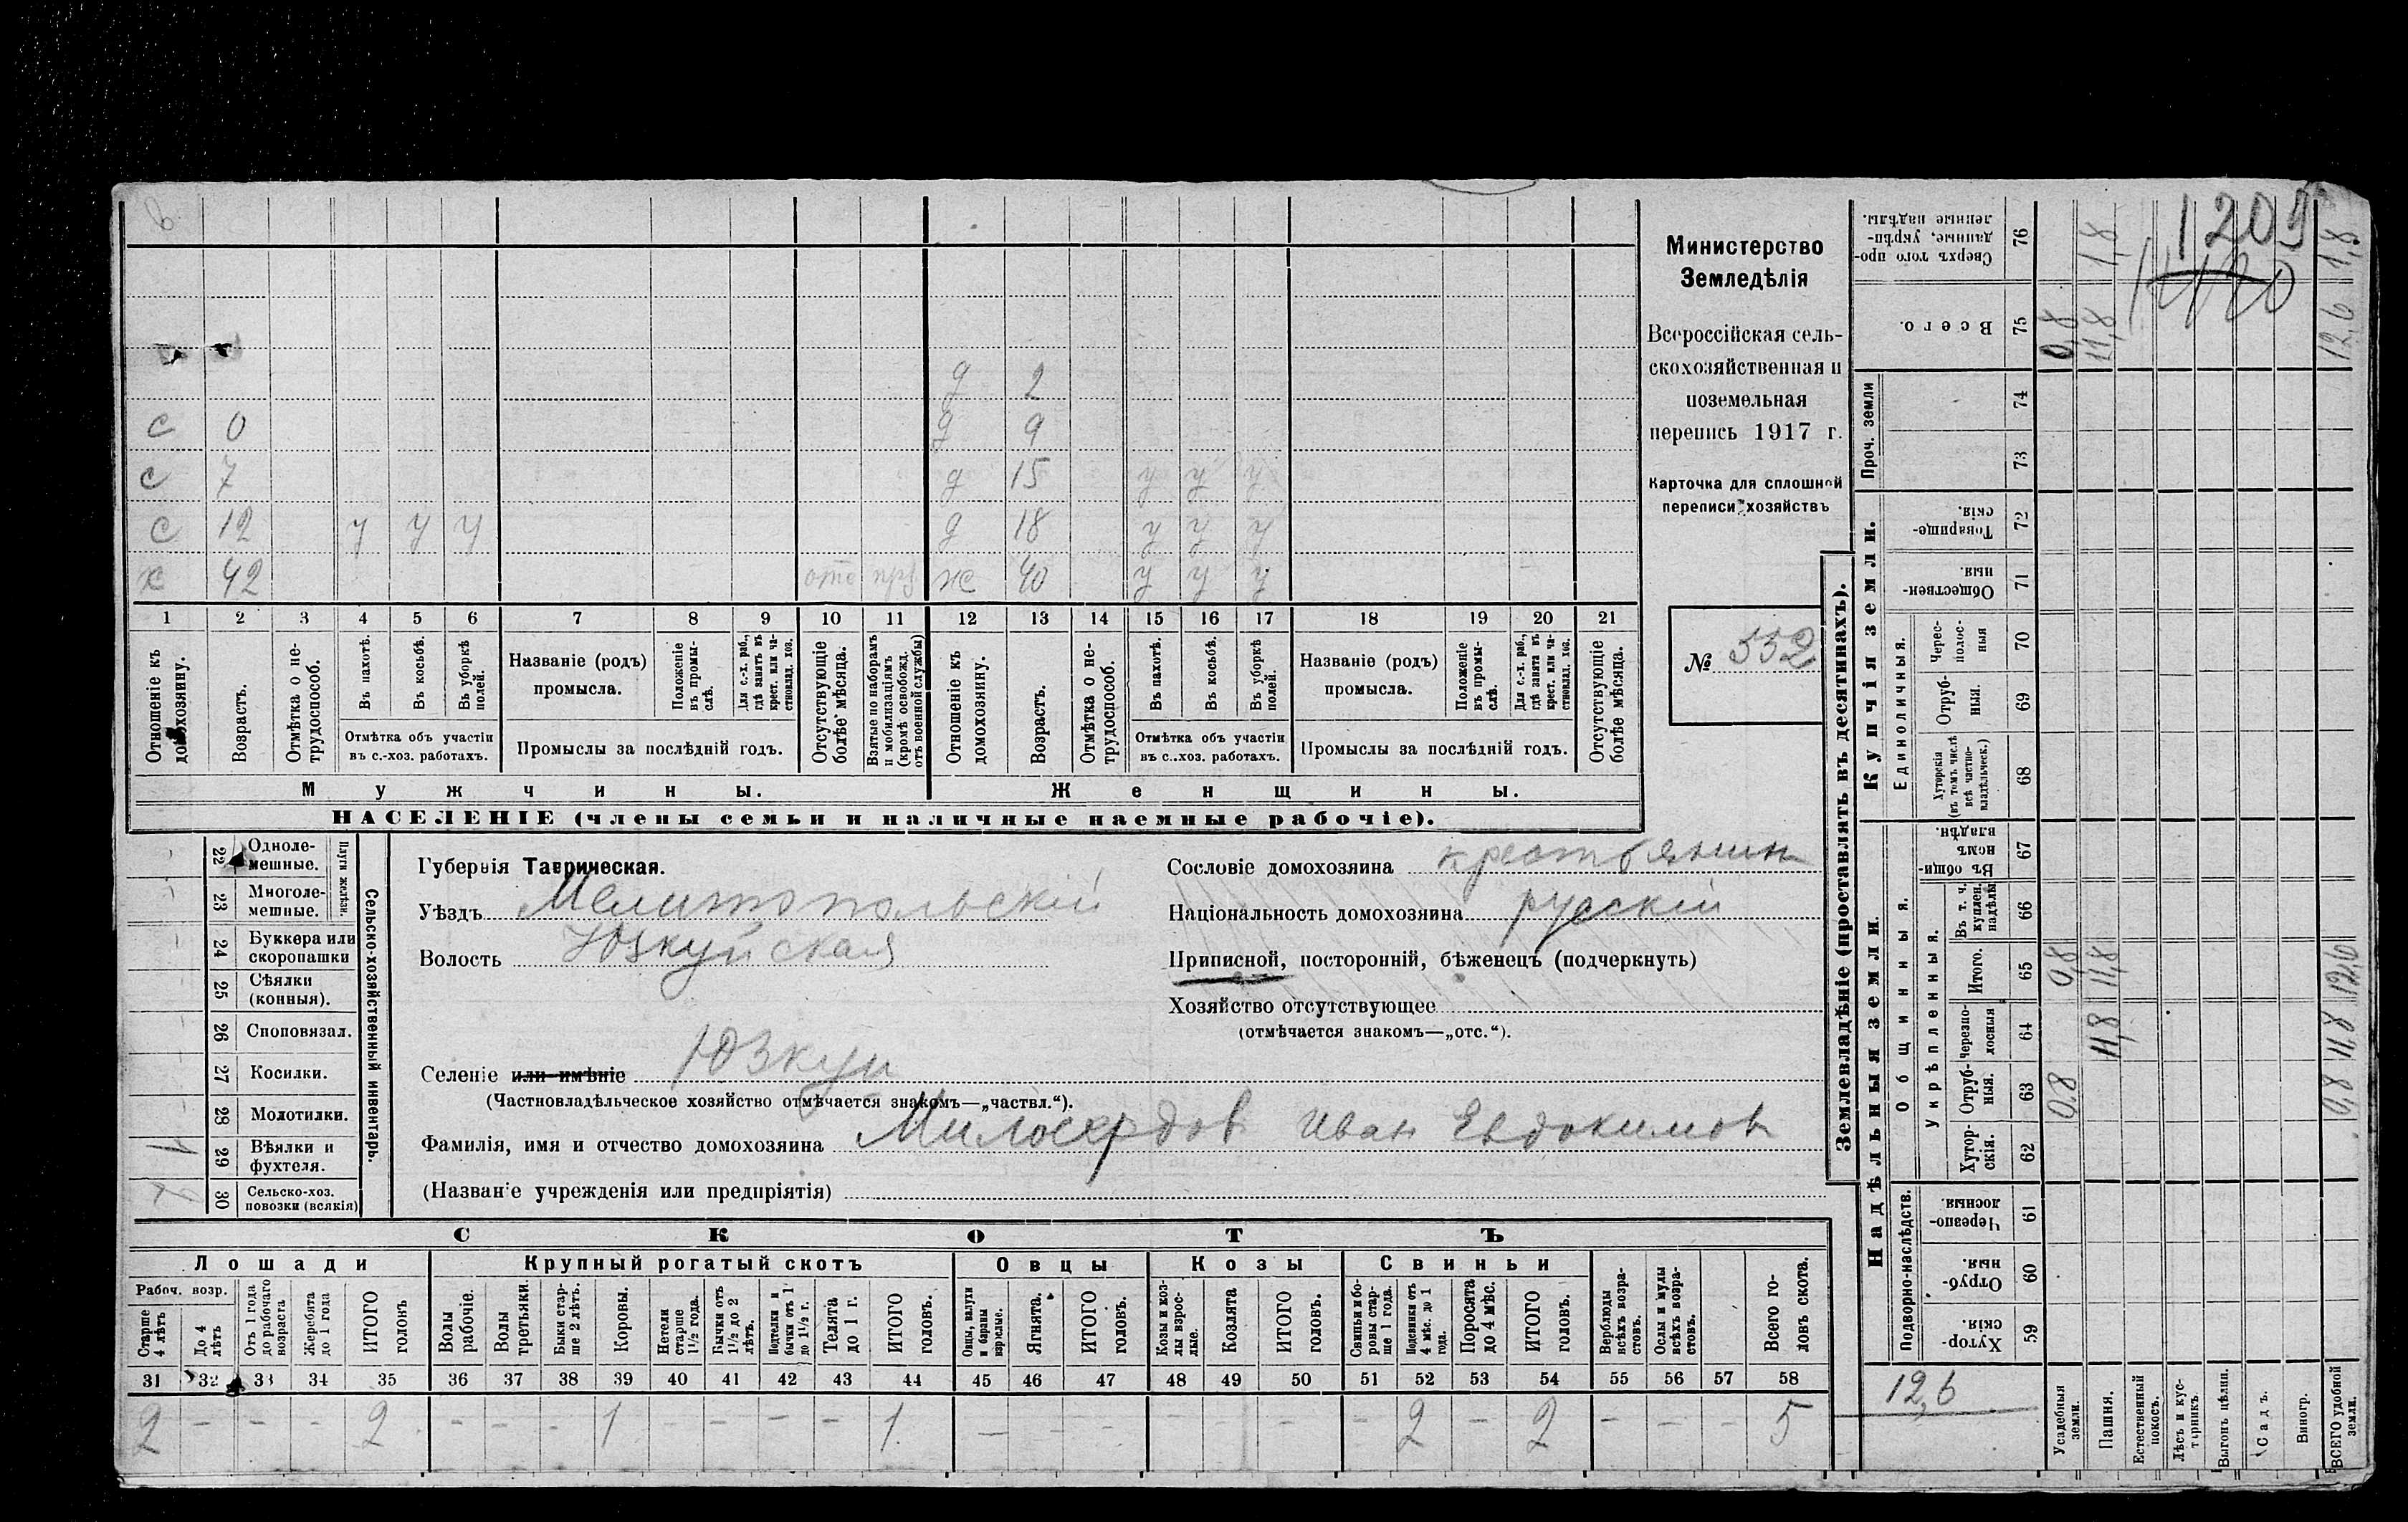 1209
1420
Министерство
Земледѣлія
Всероссійская сель-
скохозяйственная и
поземельная
перепись 1917 г.
Карточка для сплошной
переписи хозяйствъ
№ 552
д 2
с 0 д 9
с 7 д 15 у у у
с 12 у у у д 18 у у у
х 42 отс ж 40 у у у
1 2 3 4 5 6 7 8 9 10 11 12 13 14 15 16 17 18 19 20 21
Отношеніе къ домохозяину.
Возрастъ.
Отмѣтка о не-трудоспособ.
Въ пахотѣ.
Въ косьбѣ.
Въ уборкѣ полей.
Отмѣтка объ участіи
въ с.-хоз. работахъ.
Названіе (родъ)
промысла.
Положеніе въ промы-слѣ.
Для с.-х. раб., гдѣ занятъ въ крест. или ча-стновлад. хоз.
Промыслы за послѣдній годъ.
Отсутствующіе болѣе мѣсяца.
Взятые по наборамъ и мобилизаціямъ (кромѣ освобожд. отъ военной службы)
Отношеніе къ домохозяину.
Возрастъ.
Отмѣтка о не-трудоспособ.
Въ пахотѣ.
Въ косьбѣ.
Въ уборкѣ полей.
Отмѣтка объ участіи
въ с.-хоз. работахъ.
Названіе (родъ)
промысла.
Положеніе въ промы-слѣ.
Для с.-х. раб., гдѣ занята въ крест. или ча-стновлад. хоз.
Промыслы за послѣдній годъ.
Отсутствующіе болѣе мѣсяца.
Мужчины. Женщины.
НАСЕЛЕНІЕ (члены семьи и наличные наемные рабочіе).
Сельско-хозяйственный инвентарь.
Плуги желѣзн.
22 Одноле-мешные.
23 Многоле-мешные.
24 Буккера или скоропашки
25 Сѣялки (конныя).
26 Споповязал.
27 Косилки.
28 Молотилки.
29 Вѣялки и фухтеля. 1
30 Сельско-хоз. повозки (всякія)
Губернія Таврическая.
Уѣздъ Мелитопольскій
Волость Юзкуйская
Селеніе или имѣніе Юзкуи
(Частновладѣльческое хозяйство отмѣчается знакомъ—„частвл.“).
Фамилія, имя и отчество домохозяина Милосердов Иван Евдокимов
(Названіе учрежденія или предпріятія)
Сословіе домохозяина крестьянин
Національность домохозяина русскій
Приписной, посторонній, бѣженецъ (подчеркнуть)
Хозяйство отсутствующее
(отмѣчается знакомъ—„отс.“).
СКОТЪ
Лошади Крупный рогатый скотъ Овцы Козы Свиньи
Рабоч. возр.
Старше 4 лѣтъ
До 4 лѣтъ
Отъ 1 года до рабочаго возраста
Жеребята до 1 года
ИТОГО головъ
Волы рабочіе.
Волы третьяки.
Быки стар-ше 2 лѣтъ.
Коровы.
Нетели старше 1½ года.
Бычки отъ 1½ до 2 лѣтъ.
Подтелки и бычки отъ 1 до 1½ г.
Телята до 1 г.
ИТОГО головъ.
Овцы, валухи и бараны взрослые.
Ягнята.
ИТОГО головъ.
Козы и коз-лы взрос-лые.
Козлята
ИТОГО головъ.
Свиньи и бо-ровы стар-ше 1 года.
Подсвинки отъ 4 мѣс. до 1 года.
Поросята до 4 мѣс.
ИТОГО головъ.
Верблюды всѣхъ возра-стовъ.
Ослы и мулы всѣхъ возра-стовъ.
Всего го-ловъ скота.
31 32 33 34 35 36 37 38 39 40 41 42 43 44 45 46 47 48 49 50 51 52 53 54 55 56 57 58
2 – – – 2 – – – 1 – – – – 1 – – – – – 2 – 2 – – – 5
Землевладѣніе (проставлять въ десятинахъ).
Надѣльныя земли. Купчія земли. Проч. земли
Подворно-наслѣдств.
Общинныя.
Укрѣпленныя.
Единоличныя.
59 Хутор-скія.
60 Отруб-ныя.
61 Черезпо-лосныя
62 Хутор-скія.
63 Отруб-ныя.
64 Черезпо-лосныя
65 Итого.
66 Въ т. ч. куплен. надѣлы
67 Въ общи-номъ владѣн.
68 Хуторскія (въ томъ числѣ всѣ частно-владѣльческ.)
69 Отруб-ныя.
70 Черес-полос-ныя
71 Обществен-ныя.
72 Товарище-скія.
73
74
75 Всего.
76 Сверхъ того про-данные, укрѣп-ленные надѣлы.
12,6
Усадебныя земли. 0,8 0,8 0,8
Пашня. 11,8 11,8 11,8 1,8
Естественный покосъ.
Лѣсъ и кус-тарникъ.
Выгонъ цѣлин.
Садъ.
Виногр.
ВСЕГО удобной земли. 0,8 11,8 12,6 12,6 1,8